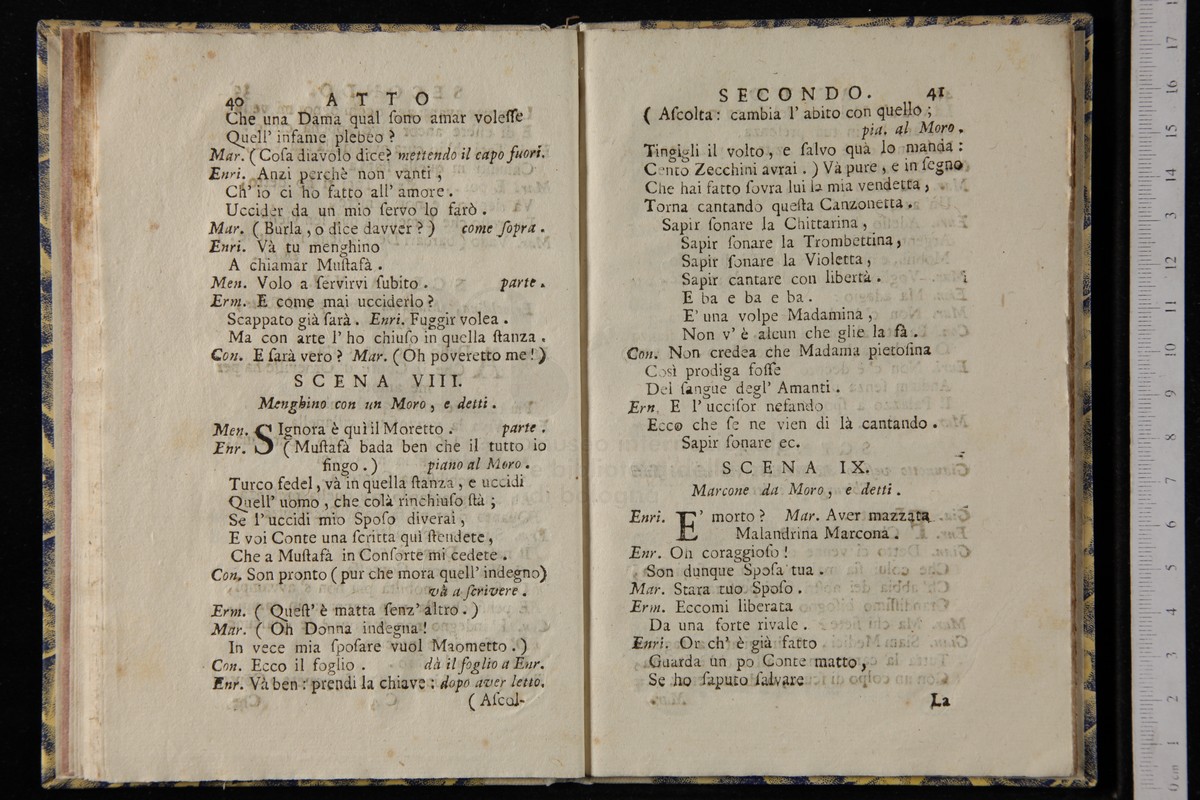 40 ATTO
Che una Dama qual ſono amar voleſſe
Quell' infame plebeo ?
Mar. ( Coſa diavolo dice? mettendo il capo fuori.
Enri. Anzi perchè non vanti ,
Ch' io ci ho fatto all' amore .
Uccider da un mio ſervo lo farò .
Mar. ( Burla , o dice davver ? ) come ſopra .
Enri. Và tu menghino
A chiamar Muſtafà .
Men. Volo a ſervirvi ſubito . parte .
Erm. E come mai ucciderlo ?
Scappato già ſarà . Enri. Fuggir volea .
Ma con arte l' ho chiuſo in quella ſtanza .
Con. E ſarà vero ? Mar. ( Oh poveretto me ! )
SCENA VIII.
Menghino con un Moro , e detti .
Men. SIgnora è quì il Moretto . parte .
Enr. ( Muſtafà bada ben che il tutto io
fingo . ) piano al Moro .
Turco fedel , và in quella ſtanza , e uccidi
Quell' uomo , che colà rinchiuſo ſtà ;
Se l' uccidi mio Spoſo diverai ,
E voi Conte una ſcritta quì ſtendete ,
Che a Muſtafà in Conſorte mi cedete .
Con. Son pronto ( pur che mora quell' indegno)
và a ſcrivere .
Erm. ( Queſt' è matta ſenz' altro . )
Mar. ( Oh Donna indegna !
In vece mia ſpoſare vuol Maometto . )
Con. Ecco il foglio . dà il foglio a Enr.
Enr. Và ben : prendi la chiave : dopo aver letto.
( Aſcol-
SECONDO. 41
( Aſcolta : cambia l' abito con quello ;
pia. al Moro .
Tingigli il volto , e ſalvo quà lo manda :
Cento Zecchini avrai . ) Và pure , e in ſegno
Che hai fatto ſovra lui la mia vendetta ,
Torna cantando queſta Canzonetta .
Sapir ſonare la Chittarina ,
Sapir ſonare la Trombettina ,
Sapir ſonare la Violetta ,
Sapir cantare con libertà .
E ba e ba e ba .
E' una volpe Madamina ,
Non v' è alcun che glie la fà .
Con. Non credea che Madama pietoſina
Così prodiga foſſe
Del ſangue degl' Amanti .
Ern. E l' ucciſor nefando
Ecco che ſe ne vien di là cantando .
Sapir ſonare ec.
SCENA IX.
Marcone da Moro , e detti .
Enri. E' morto ? Mar. Aver mazzata
Malandrina Marcona .
Enr. Oh coraggioſo !
Son dunque Spoſa tua .
Mar. Stara tuo Spoſo .
Erm. Eccomi liberata
Da una forte rivale .
Enri. Or ch' è già fatto
Guarda un po Conte matto ,
Se ho ſaputo ſalvare
La